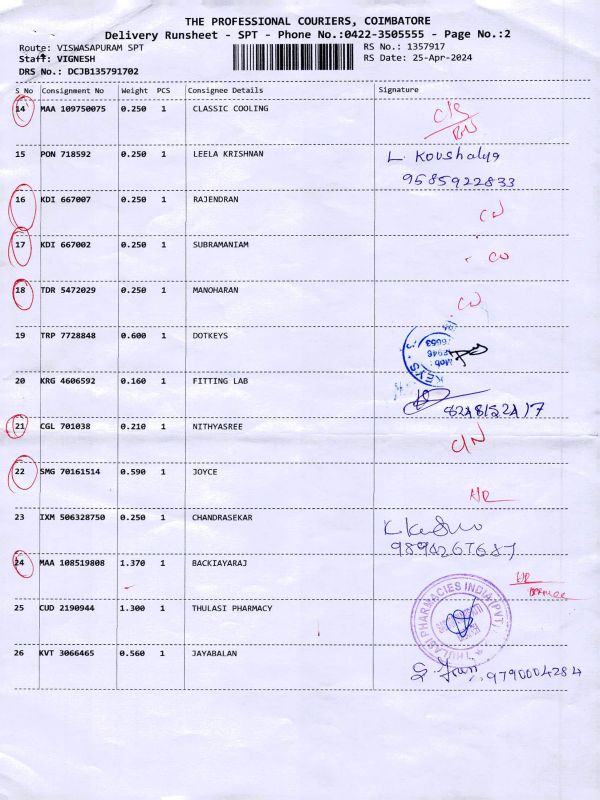 THE PROFESSIONAL COURIERS, COIMBATORE
Delivery Runsheet - SPT - Phone No.:0422-3505555 - Page No.:2
Route: VISWASAPURAM SPT RS No.: 1357917
Staff: VIGNESH RS Date: 25-Apr-2024
DRS No.: DCJB135791702
S No Consignment No Weight PCS Consignee Details Signature
14 MAA 109750075 0.250 1 CLASSIC COOLING
15 PON 718592 0.250 1 LEELA KRISHNAN L. Koushalya
9585922833
16 KDI 667007 0.250 1 RAJENDRAN
17 KDI 667002 0.250 1 SUBRAMANIAM
18 TDR 5472029 0.250 1 MANOHARAN
19 TRP 7728848 0.600 1 DOTKEYS
20 KRG 4606592 0.160 1 FITTING LAB
21 CGL 701038 0.210 1 NITHYASREE
22 SMG 70161514 0.590 1 JOYCE
23 IXM 506328750 0.250 1 CHANDRASEKAR
24 MAA 108519808 1.370 1 BACKIAYARAJ
25 CUD 2190944 1.300 1 THULASI PHARMACY THULASI PHARMACIES INDIA (PVT)
26 KVT 3066465 0.560 1 JAYABALAN
9790004284